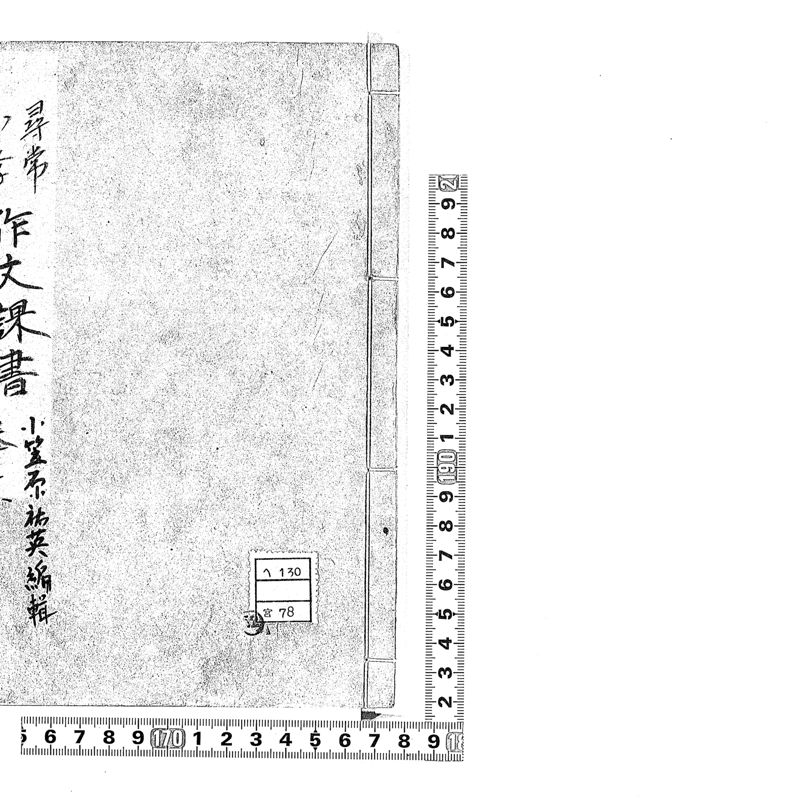 尋常
作文課書
小笠原祐英編輯
ヘ 130
宮 78
2 3 4 5 6 7 8 9 190 1 2 3 4 5 6 7 8 9
6 7 8 9 170 1 2 3 4 5 6 7 8 9